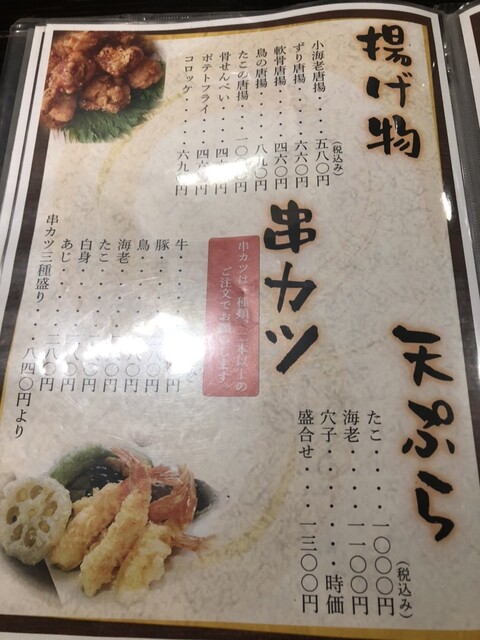 揚げ物
(税込み)
小海老唐揚・・・五八〇円
ずり唐揚・・・六六〇円
軟骨唐揚・・・四六〇円
鳥の唐揚・・・八九〇円
たこの唐揚・・一〇
骨せんべい・・四
ポテトフライ・・四六〇円
コロッケ・・・・六九〇円
串カツ
串カツは一種類、二本以上の
ご注文でお願いします。
牛・・
豚・・
鳥・・
海老・・
たこ・・
白身・・
あじ・・・
串カツ三種盛り・・・八四〇円より
天ぷら
(税込み)
たこ・・・・・一〇〇〇円
海老・・・・・一一〇〇円
穴子・・・・・・・時価
盛合せ・・・一三〇〇円